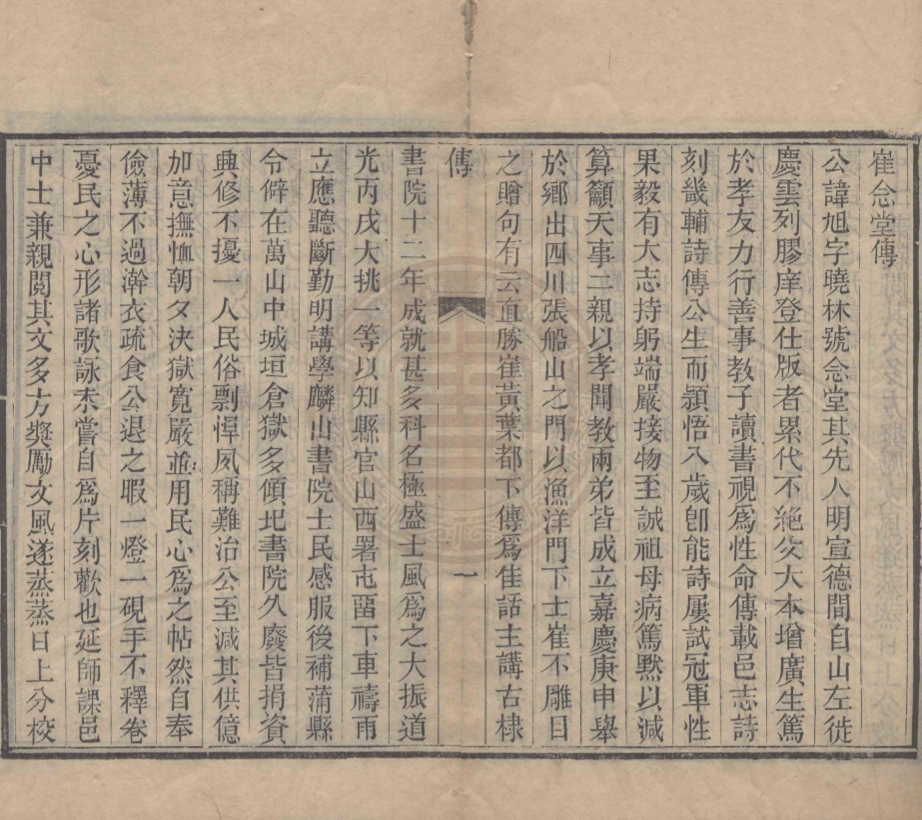 崔念堂傳
公諱旭字曉林號念堂其先人明宣德間自山左徙
慶雲列膠庠登仕版者累代不絕父大本增廣生篤
於孝友力行善事教子讀書視爲性命傳載邑志詩
刻畿輔詩傳公生而頴悟八歲卽能詩屢試冠軍性
果毅有大志持躬端嚴接物至誠祖母病篤黙以減
算籲天事二親以孝聞教兩弟皆成立嘉慶庚申舉
於鄉出四川張船山之門以漁洋門下士崔不雕目
之贈句有云直勝崔黃葉都下傳爲佳話主講古棣
傳
一
書院十二年成就甚多科名極盛士風爲之大振道
光丙戌大挑一等以知縣官山西署屯畱下車禱雨
立應聽斷勤明講學麟山書院士民感服後補蒲縣
令僻在萬山中城垣倉獄多傾圮書院久廢皆捐資
興修不擾一人民俗剽悍夙稱難治公至減其供億
加意撫恤朝夕決獄寬嚴並用民心爲之帖然自奉
儉薄不過澣衣疏食公退之暇一燈一硯手不釋卷
憂民之心形諸歌詠未嘗自爲片刻歡也延師課邑
中士兼親閱其文多方奬勵文風遂蒸蒸日上分校